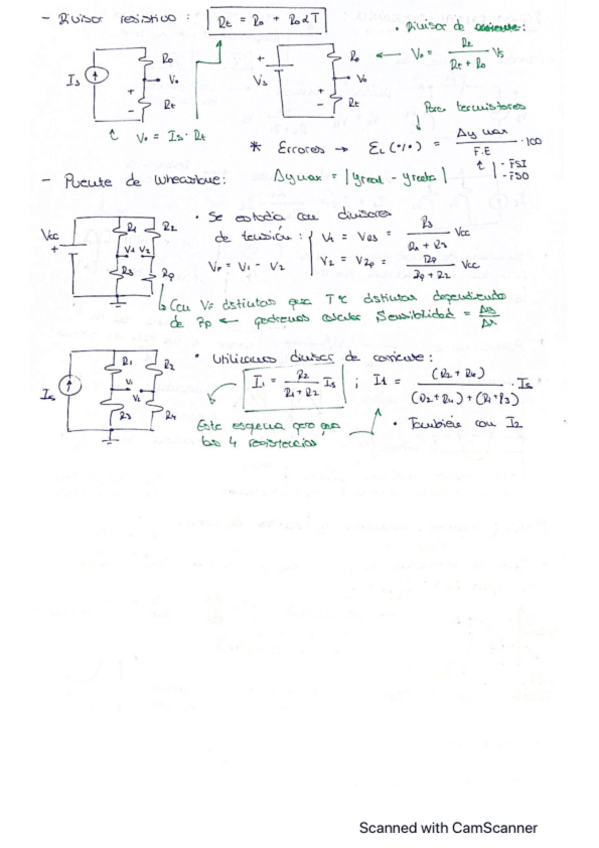 - Divisor resistivo : Rt = Ro + Ro α T
• Divisor de corriente:
Vo = Rt / (Rt + Ro) Vs
Is
Ro
Vo
+
-
Rt
+
Vs
Ro
Vo
+
-
Rt
Vo = Is · Rt
Para termistores
* Errores → EL (%) = Δy max / F.E · 100
- FSI
- FSO
- Puente de Wheatstone:
Δymax = | yreal - yrecta |
Vcc
+
R1
R2
V1
V2
R3
Rp
• Se estudia con divisores
de tensión : { V1 = VR3 = R3 / (R1 + R3) Vcc
Vo = V1 - V2
V2 = VRp = Rp / (Rp + R2) Vcc
Con Vo distintas que Tª distintas dependiendo
de Rp ← podremos calcular Sensibilidad =
Is
R1
R2
V1
V2
R3
R4
• Utilizamos divisor de corriente :
I1 = R2 / (R1 + R2) Is ; I1 = (R2 + R4) / ((R2 + R4) + (R1 + R3)) · Is
Este esquema pero con
las 4 resistencias
• También con I2
Scanned with CamScanner